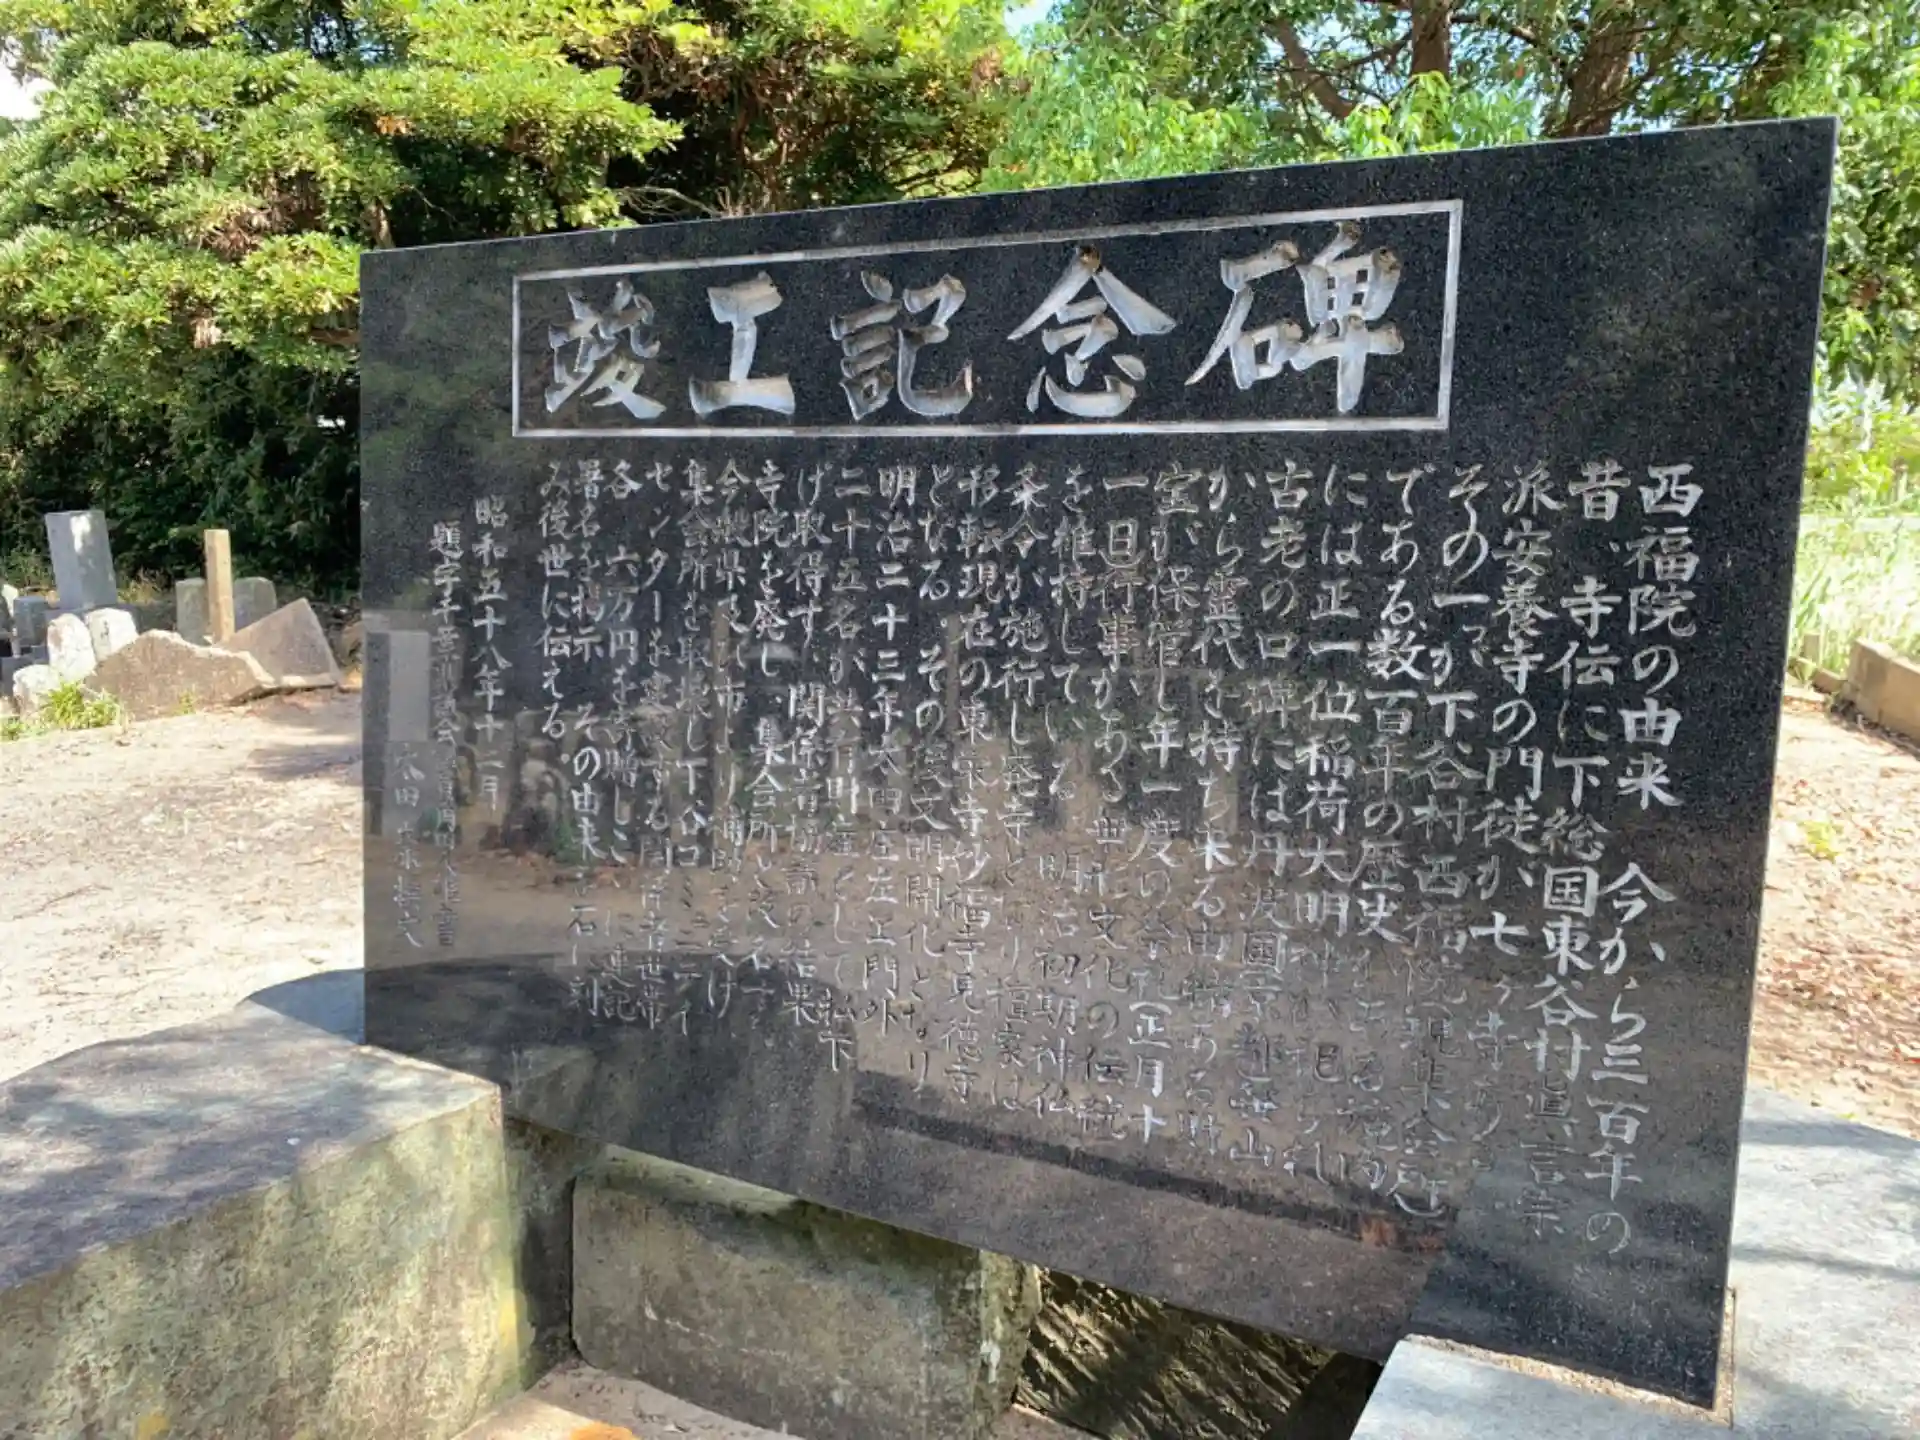 竣工記念碑
西福院の由来 今から三百年の
昔、寺伝に下総国東谷村真言宗
派安養寺の門徒が七ヶ寺あり
その一つが下谷村西福院(現集会所)
である。数百年の歴史がある
には正一位稲荷大明神が祀られ
古老の口碑には丹波国京都
から霊代を持ち来る由緒ある
宝が保管し年一度の祭礼(正月十
一日)行事がある無形文化の伝統
を維持している。明治初期神仏
条令が施行し廃寺となり檀家は
移転現在の東栄寺妙福寺見徳寺
となる。その後文明開化となり
明治二十三年太田庄左ェ門外
二十五名が共有財産として払下
げ取得す。関係者協議の結果
寺院を廃し、集会所と改名す
今般県及び市より補助を受け
集会所を取壊し下谷コミニティ
センターを建設する関係者世帯
各 六万円を寄贈しここに連記
署名を掲示 その由来を石に刻
み後世に伝える。
昭和五十八年十二月
題字千葉
太田